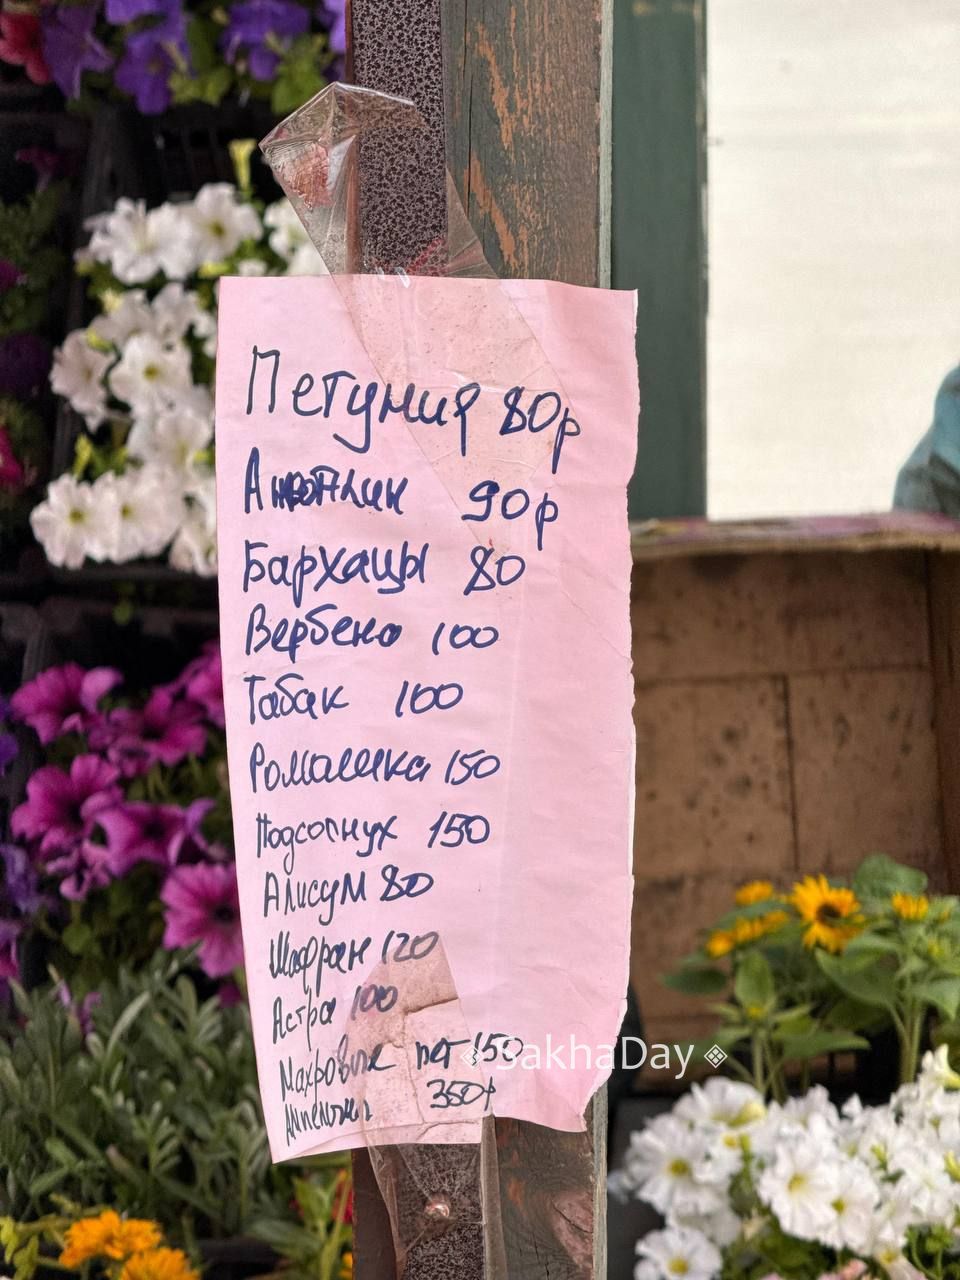 Петуния 80р
90р
Бархацы 80
Вербена 100
Табак 100
Ромашка 150
Подсолнух 150
Алисум 80
Шафран 120
Астра 100
Махровые пет 150
350р
SakhaDay